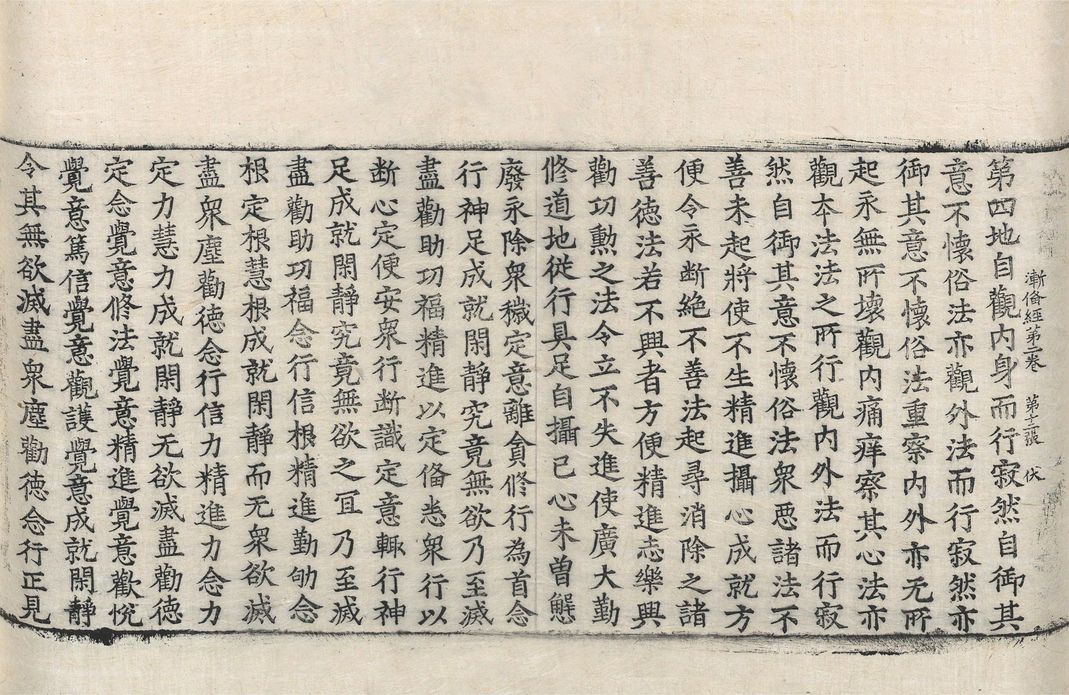 漸備經第二卷 第十三張 伏
第四地自觀內身而行寂然自御其
意不懷俗法亦觀外法而行寂然亦
御其意不懷俗法重察內外亦无所
起永無所壞觀內痛痒察其心法亦
觀夲法法之所行觀內外法而行寂
然自御其意不懷俗法衆惡諸法不
善未起將使不生精進攝心成就方
便令永断絕不善法起尋消除之諸
善徳法若不興者方便精進志樂興
勸功勳之法令立不失進使廣大勤
修道地從行具足自攝已心未曽懈
廢永除衆穢定意離貪修行為首念
行神足成就閑靜究竟無欲乃至滅
盡勸助功福精進以定俻悉衆行以
断心定便安衆行断識定意輙行神
足成就閑靜究竟無欲之冝乃至滅
盡勸助功福念行信根精進勤劬念
根定根慧根成就閑靜而无衆欲滅
盡衆塵勸徳念行信力精進力念力
定力慧力成就閑靜无欲滅盡勸徳
定念覺意修法覺意精進覺意歡恱
覺意篤信覺意觀護覺意成就閑靜
令其無欲滅盡衆塵勸徳念行正見